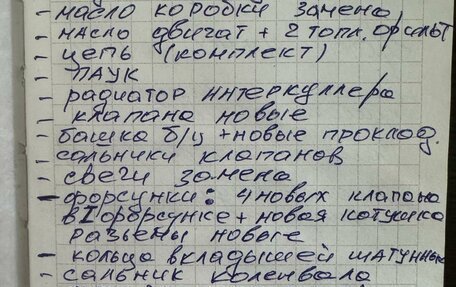 - масло коробки замена
- масло двигат + 2 топл. фильт
- цепь (комплект)
- паук
- радиатор интеркуллера
клапана новые
- башка б/у + новые проклад.
- сальники клапанов
- свечи замена
- форсунки: 4 новых клапана
в I форсунке + новая катушка
разьемы новые
- кольца вкладышей шатунных
- сальник коленвала